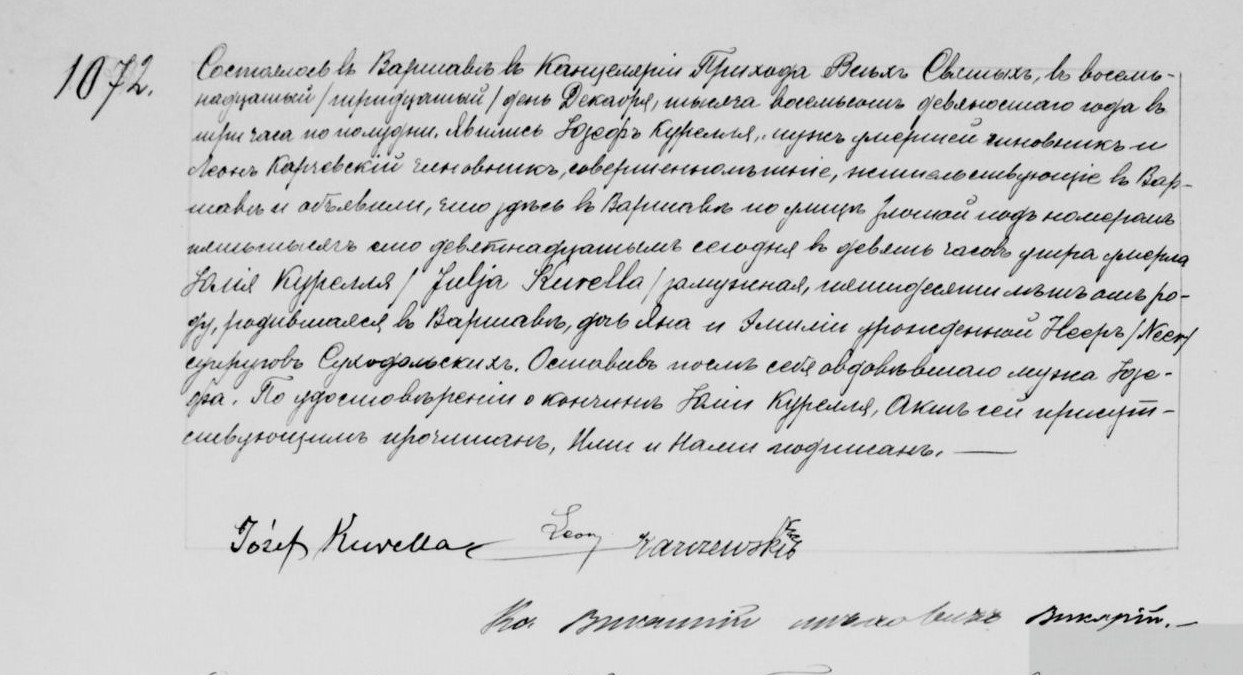 1072.
Состоялось въ Варшавѣ въ Канцеляріи Прихода Всѣхъ Святыхъ, въ восемь-
надцатый /тридцатый/ день Декабря, тысяча восемьсотъ девяностаго года въ
три часа по полудни. Явились Юзефъ Курелля, мужъ умершей чиновникъ и
Леонъ Карчевскій чиновникъ, совершеннолѣтніе, жительствующіе въ Вар-
шавѣ и объявили, что здѣсь въ Варшавѣ по улицѣ Злотой подъ номеромъ
пятьтысячъ сто девятнадцатымъ сегодня въ девять часовъ утра умерла
Юлія Курелля /Julja Kurella/ замужная, пятидесяти лѣтъ отъ ро-
ду, родившаяся въ Варшавѣ, дочь Яна и Эмиліи урожденной Нееръ /Neer/
супруговъ Суходольскихъ. Оставивъ послѣ себя овдовѣвшаго мужа Юзе-
фа. По удостовѣреніи о кончинѣ Юліи Курелля, Актъ сей присут-
ствующимъ прочитанъ, Ими и Нами подписанъ. —
Józef Kurella Leon Karczewski
Кс. Викарій. —